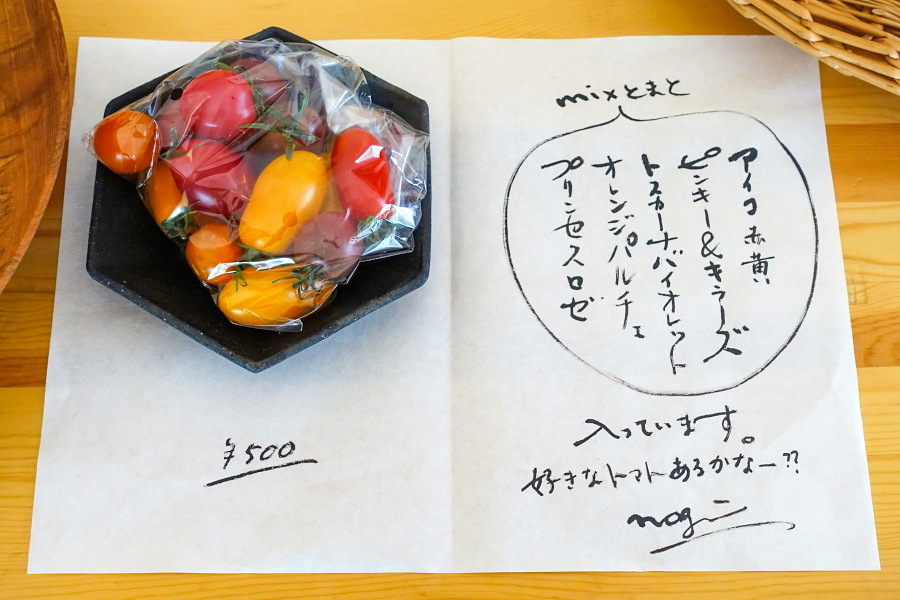 mixとまと
アイコ 赤黄
ピンキー&キラーズ
トスカーナバイオレット
オレンジパルチェ
プリンセスロゼ
入っています。
好きなトマトあるかなー??
nogi
¥500